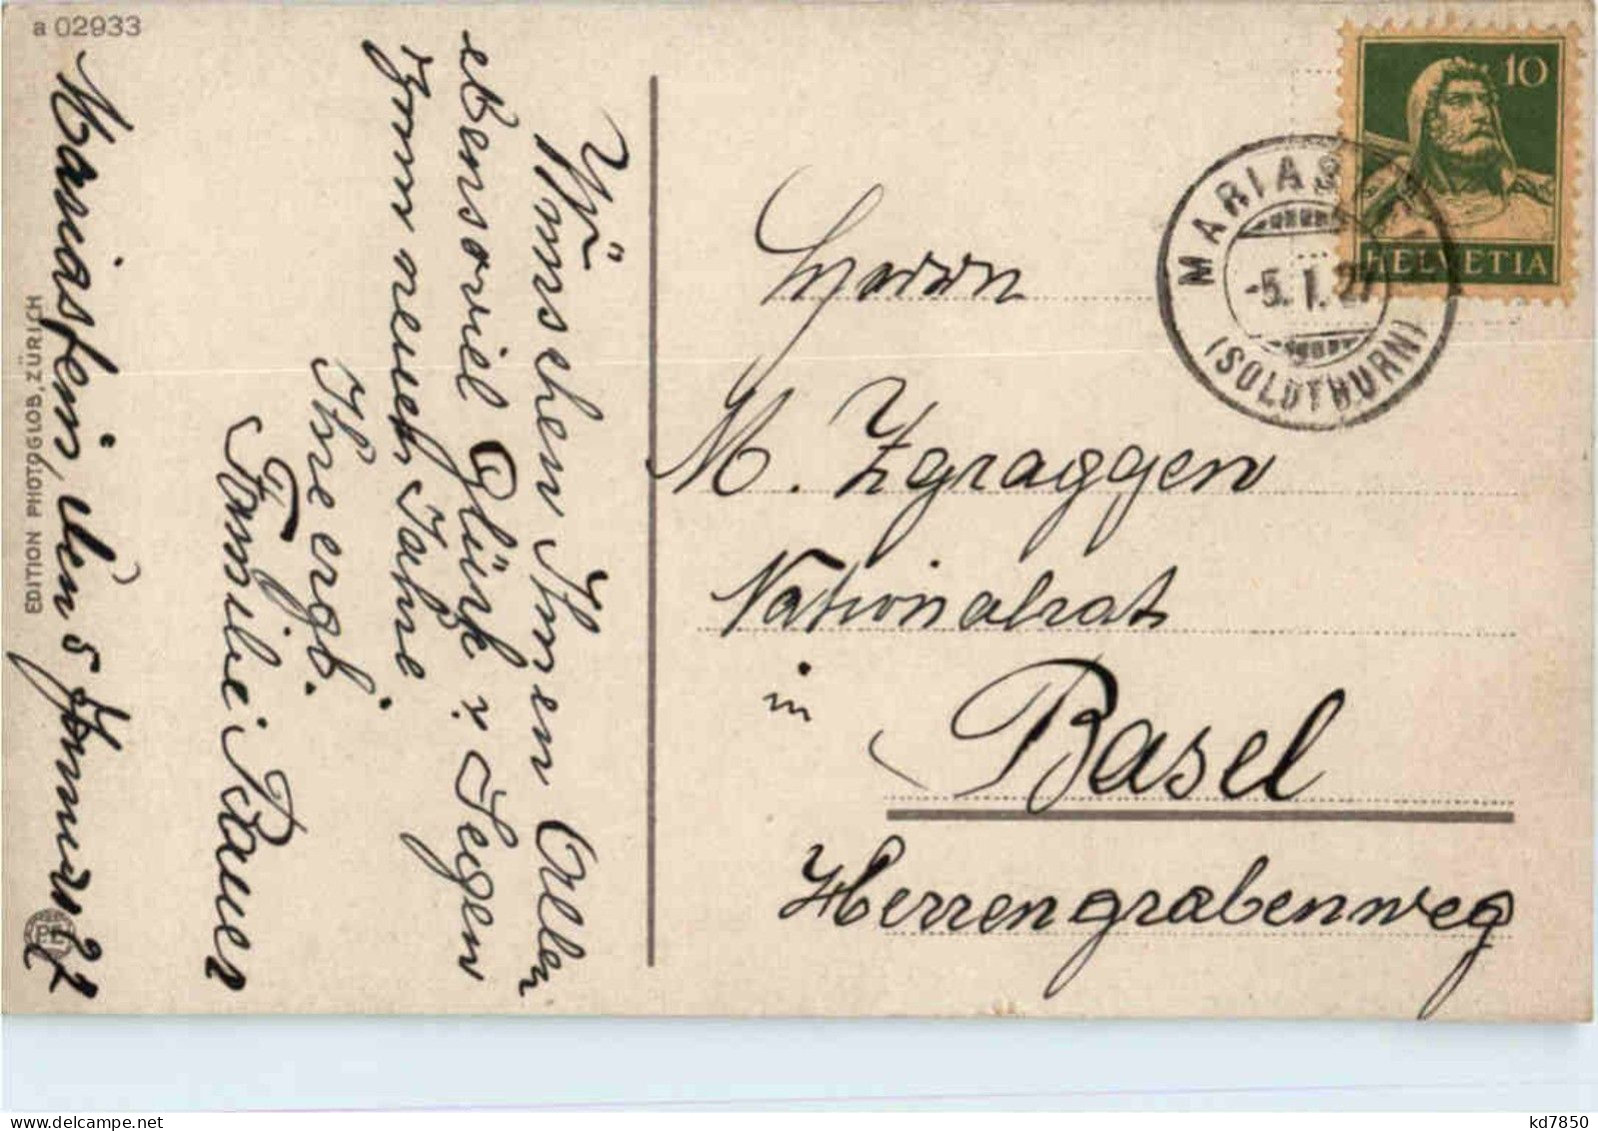 a 02933
Mariastein, den 5 Januar 27
EDITION PHOTOGLOB, ZÜRICH
Wir
Wünschen Ihnen Allen
ebensoviel Glück u. Segen
zum neuen Jahre.
Ihre ergb.
Familie
10
HELVETIA
MARIAS
-5. I. 27
(SOLOTHURN)
Herrn
M. Zgraggen
Nationalrat
in
Basel
Herrengrabenweg
kd7850